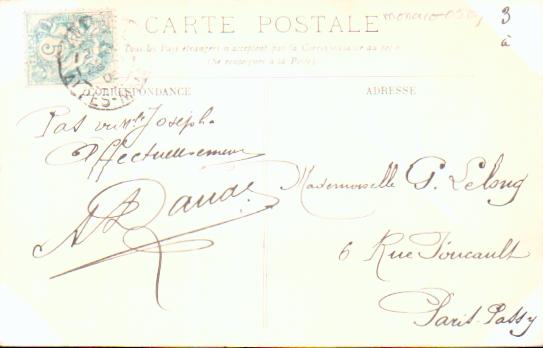 CARTE POSTALE
monaco
3
à
Tous les Pays étrangers n'acceptent pas la Correspondance au recto
(Se renseigner à la Poste)
CORRESPONDANCE
ADRESSE
5
ALPES-M
Pas vu Mlle Joseph.
Affectueusement
Mademoiselle G. Lelong
6 Rue Foucault
Paris-Passy